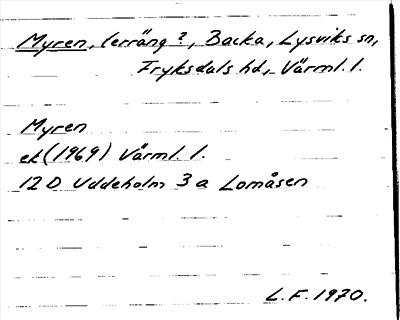 Myren, lerräng?, Backa, Lysviks sn,
Fryksdals hd, Värml. l.
Myren
ek (1969) Värml. l.
12 D Uddeholm 3 a Lomåsen
L.F. 1970.